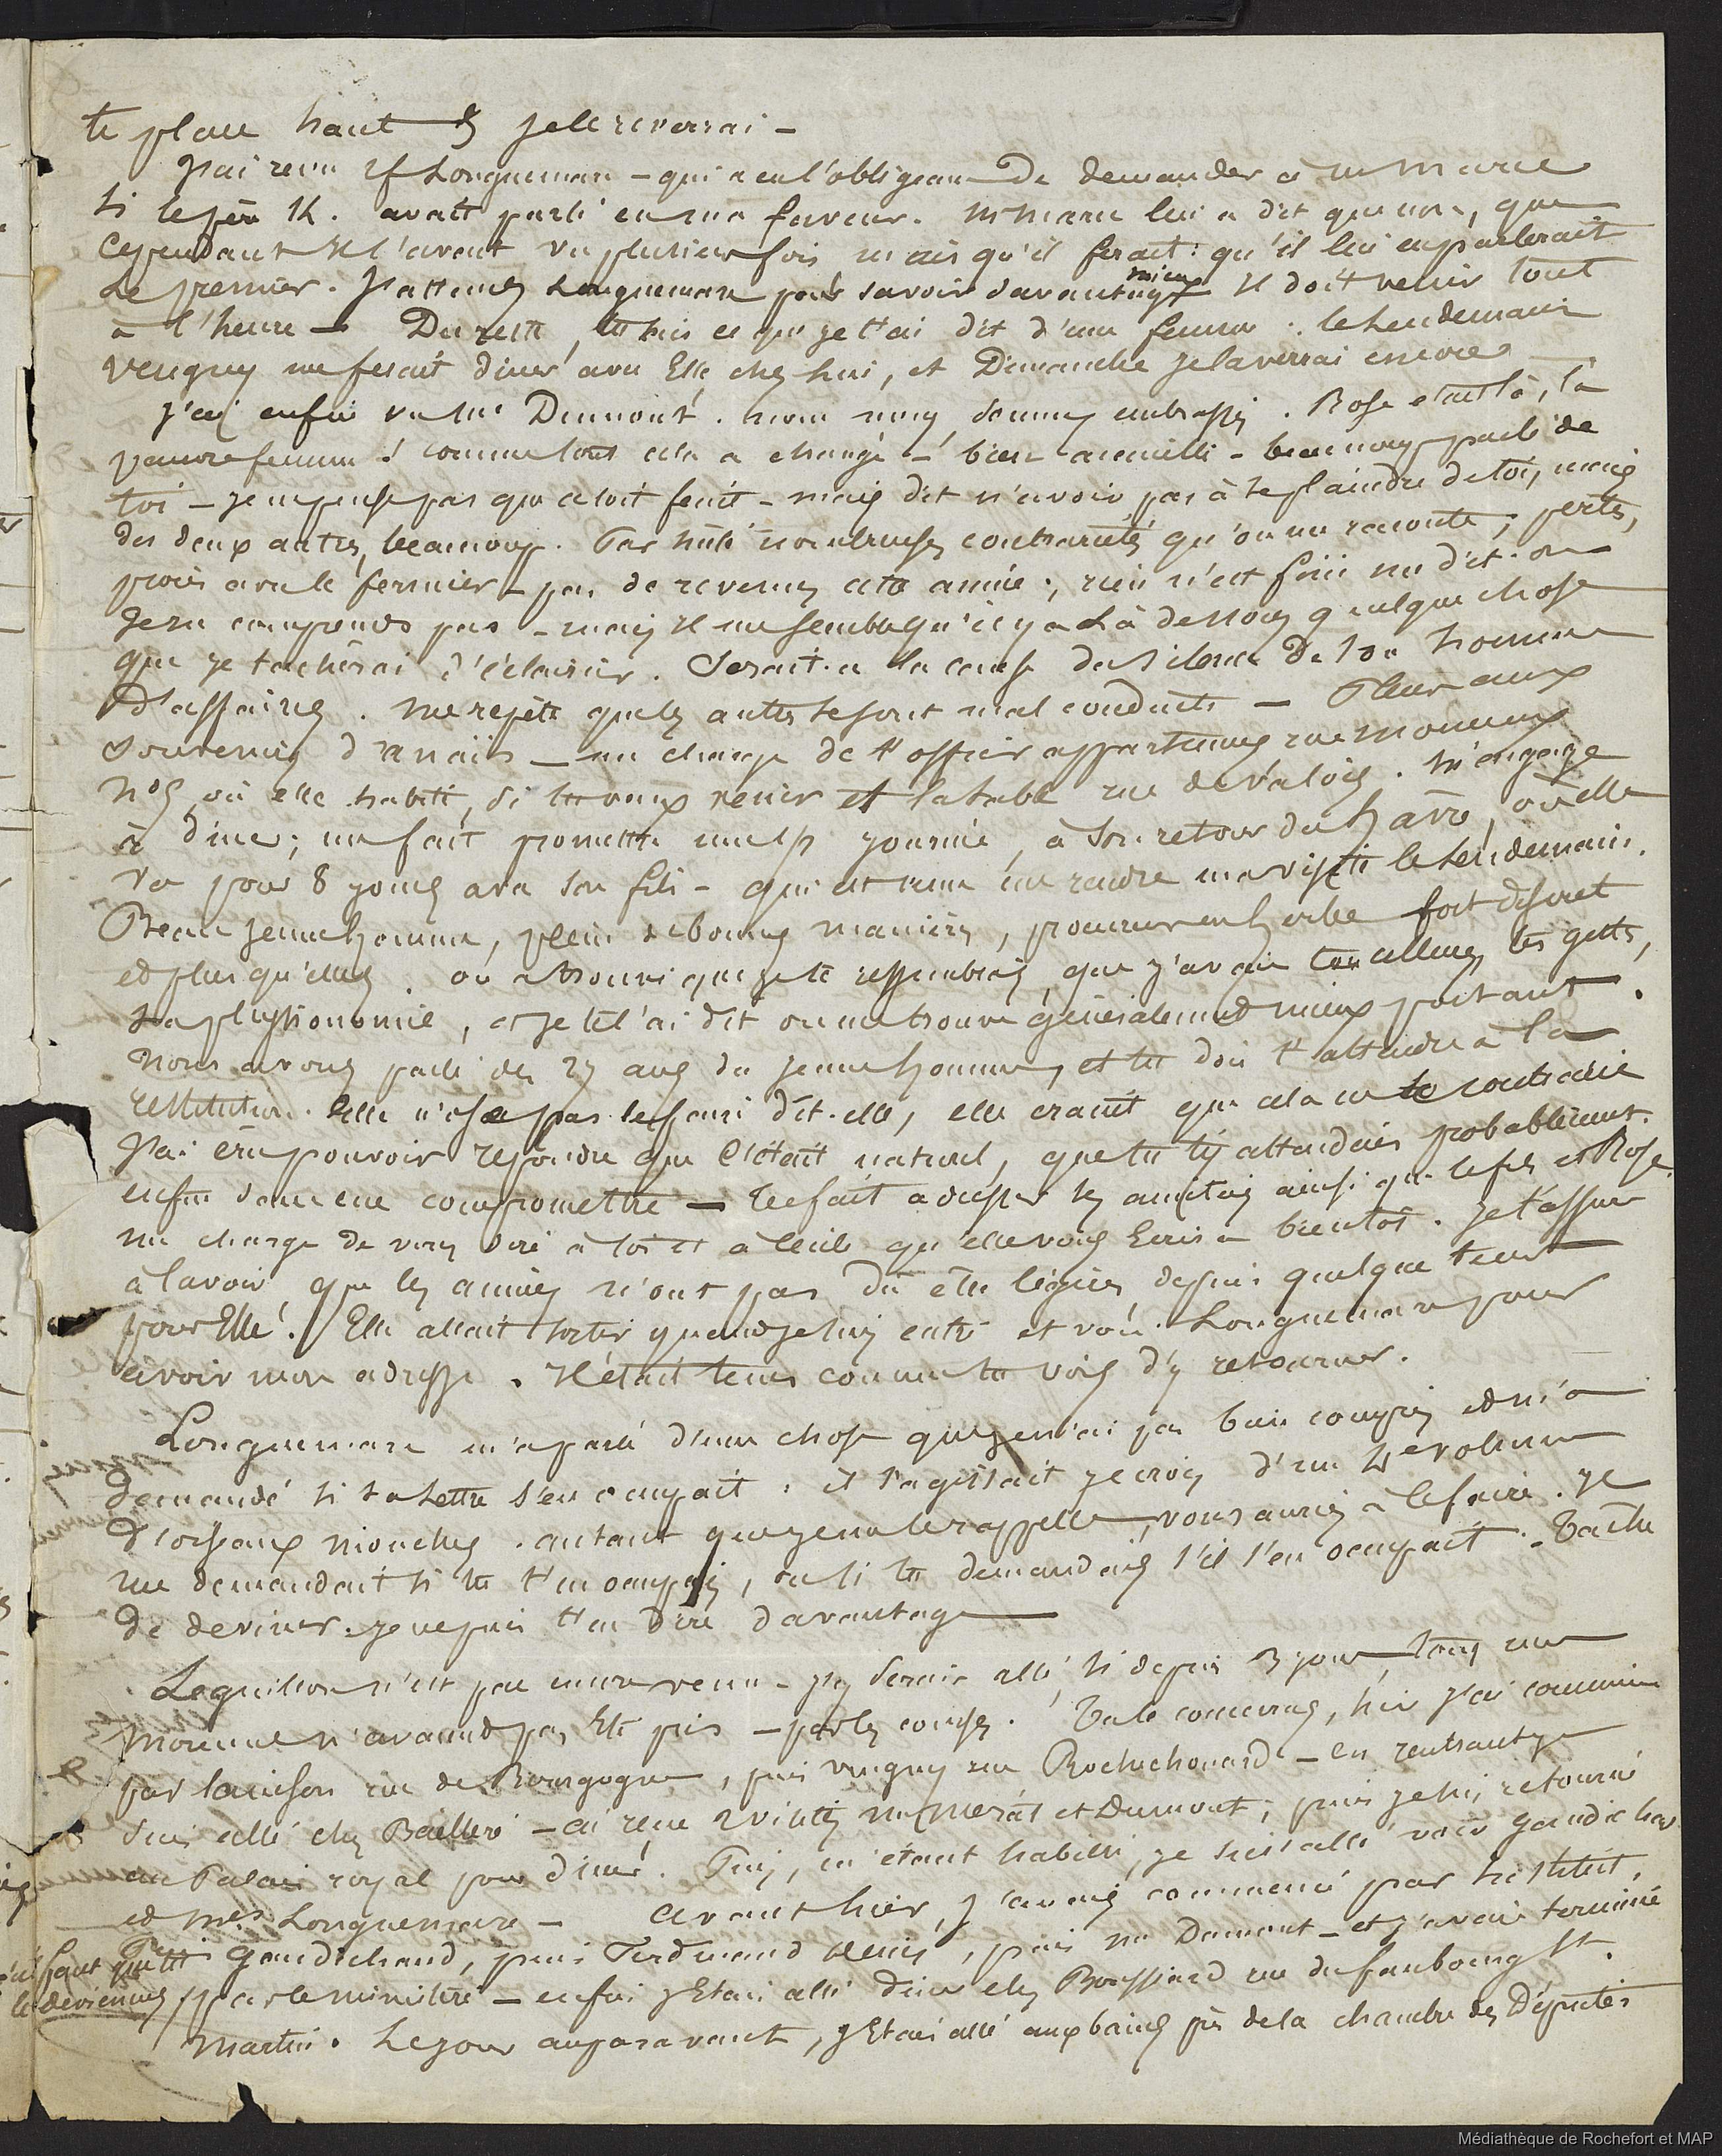 te place haut & je le reverrai –
J'ai revu Mr Longuemare – qui a eu l'obligeance de demander à Mr Marec
si le père K. avait parlé en ma faveur. Mr Marec lui a dit que non, que
cependant il l'avait vu plusieurs fois mais qu'il ferait : qu'il lui en parlerait
le premier. J'attends Longuemare pour savoir davantage mieux Il doit venir tout
à l'heure – Du reste, tu sais ce que je t'ai dit d'une femme. le lendemain
Vengny me fesait diner avec Elle chez lui, et Dimanche je la verrai encore –
J'ai enfin vu Me Dumont. nous nous sommes embrassés. Rose etait là, la
pauvre femme ! comme tout cela a changé – bien accueilli – beaucoup parlé de
toi – je ne pense pas que ce soit feint – mais dit n'avoir pas à se plaindre de toi, mais
des deux autres, beaucoup. Par suite nombreuses contrariétés qu'on me raconte, pertes,
procès avec le fermier – pas de revenus cette année ; rien n'est fini me dit-on
Je ne comprends pas – mais il me semble qu'il y a là dessous quelque chose
que je tacherai d'éclaircir. Serait-ce la cause du silence de ton homme
d'affaires. me repète que les autres se sont mal conduits – Pleure aux
souvenirs d'anaïs – me charge de t'offrir appartement rue
No 5 où elle habite, si tu veux venir et la table rue de Valois. M'engage
à diner ; me fait promettre une journée, à son retour du havre, où elle
va pour 8 jours avec son fils – qui est venu me rendre ma visite le lendemain.
Beau jeune homme, plein de bonnes manières, procureur en herbe fort discret
et plus qu'elles. on a trouvé que je te ressemblais, que j'avais ton allure, tes gestes,
ta physionomie, et je te l'ai dit on me trouve généralement mieux portant.
Nous avons parlé des 25 ans du jeune homme, et tu dois t'attendre à la
restitution. Elle n'ose pas le faire dit-elle, elle craint que cela ne te contrarie
J'ai cru pouvoir repondre que c'était naturel, que tu t'y attendais probablement.
enfin sans me compromettre – te fait adresser ses amitiés ainsi que le fils et Rose.
me charge de vous dire à toi et à Cécile qu'elle vous Ecrira bientot. Je t'assure
à la voir, que les années n'ont pas dû etre légères depuis quelque tems
pour Elle. Elle allait sortir quand je suis entré et voir Longuemare pour
avoir mon adresse. Il était tems comme tu vois d'y retourner.
Longuemare m'a parlé d'une chose que je n'ai pas bien compris et m'a
demandé si ta lettre s'en occupait. il s'agissait je crois d'un 4e volume
d'oiseaux mouches. autant que je me le rappelle, vous auriez à le faire. Je
me demandait si tu t'en occupais, ou si tu demandais s'il s'en occupait. Tache
de deviner. je ne puis t'en dire davantage
Leguillou n'est pas encore venu – j'y serais allé, si depuis 3 jours, tous mes
momens n'avaient pas Eté pris – par les courses. Tu le concevras, hier j'ai commencé
par rue de Bourgogne, puis Vengny rue Rochechouard – en rentrant je
suis allé chez Baillière – ai reçu 2 visites Mr Merat et Dumont ; puis je suis retourné
au Palais royal pour diner. Puis, m'étant habillé, je suis allé voir gaudichau
et Mes Longuemare – Avant hier, j'avais commencé par l'institut,
Puis Gaudichaud, puis Ferdinand Denis, puis Me Dumont – et j'avais terminé
par le ministère – enfin j'Etais allé diner chez Boussiard rue du faubourg St.
Martin. Le jour auparavant, j'Etais allé aux bains près de la chambre des Députés